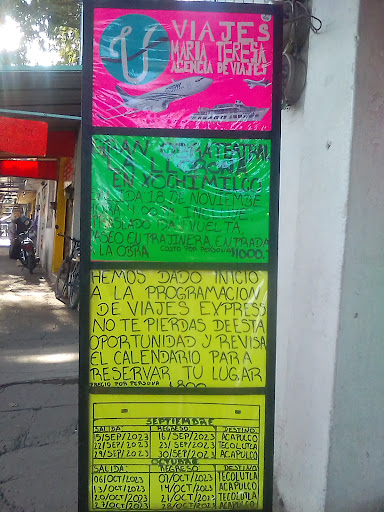 VIAJES
MARIA TERESA
AGENCIA DE VIAJES
GRAN
A LA LLORONA
EN XOCHIMILCO
18 DE NOVIEMBRE
INCLUYE
TRASLADO IDA Y VUELTA,
PASEO EN TRAJINERA, ENTRADA
LA OBRA COSTO POR PERSONA $1000.
HEMOS DADO INICIO
A LA PROGRAMACION
DE VIAJES EXPRESS
NO TE PIERDAS DE ESTA
OPORTUNIDAD Y REVISA
EL CALENDARIO PARA
RESERVAR TU LUGAR
PRECIO POR PERSONA 800
SEPTIEMBRE
SALIDA: REGRESO DESTINO
15/SEP/2023 16/SEP/2023 ACAPULCO
22/SEP/2023 23/SEP/2023 TECOLUTLA
29/SEP/2023 30/SEP/2023 ACAPULCO
OCTUBRE
SALIDA: REGRESO DESTINO
06/OCT/2023 07/OCT/2023 TECOLUTLA
13/OCT/2023 14/OCT/2023 ACAPULCO
20/OCT/2023 21/OCT/2023 TECOLUTLA
27/OCT/2023 28/OCT/2023 ACAPULCO